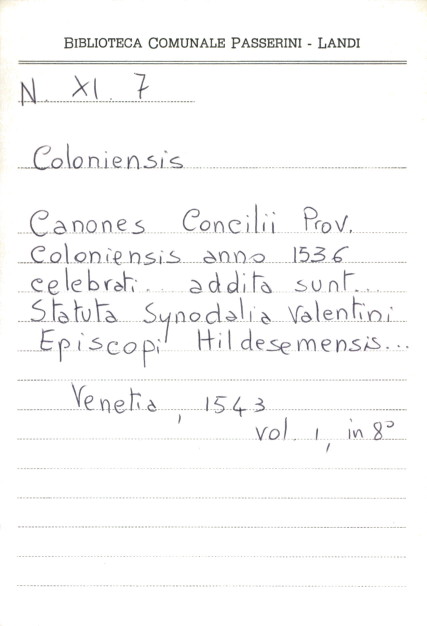 BIBLIOTECA COMUNALE PASSERINI - LANDI
N. XI. 7
Coloniensis
Canones Concilii Prov.
Coloniensis anno 1536
celebrati... addita sunt...
Statuta Synodalia Valentini
Episcopi Hildesemensis...
Venetia, 1543
vol. 1, in 8°